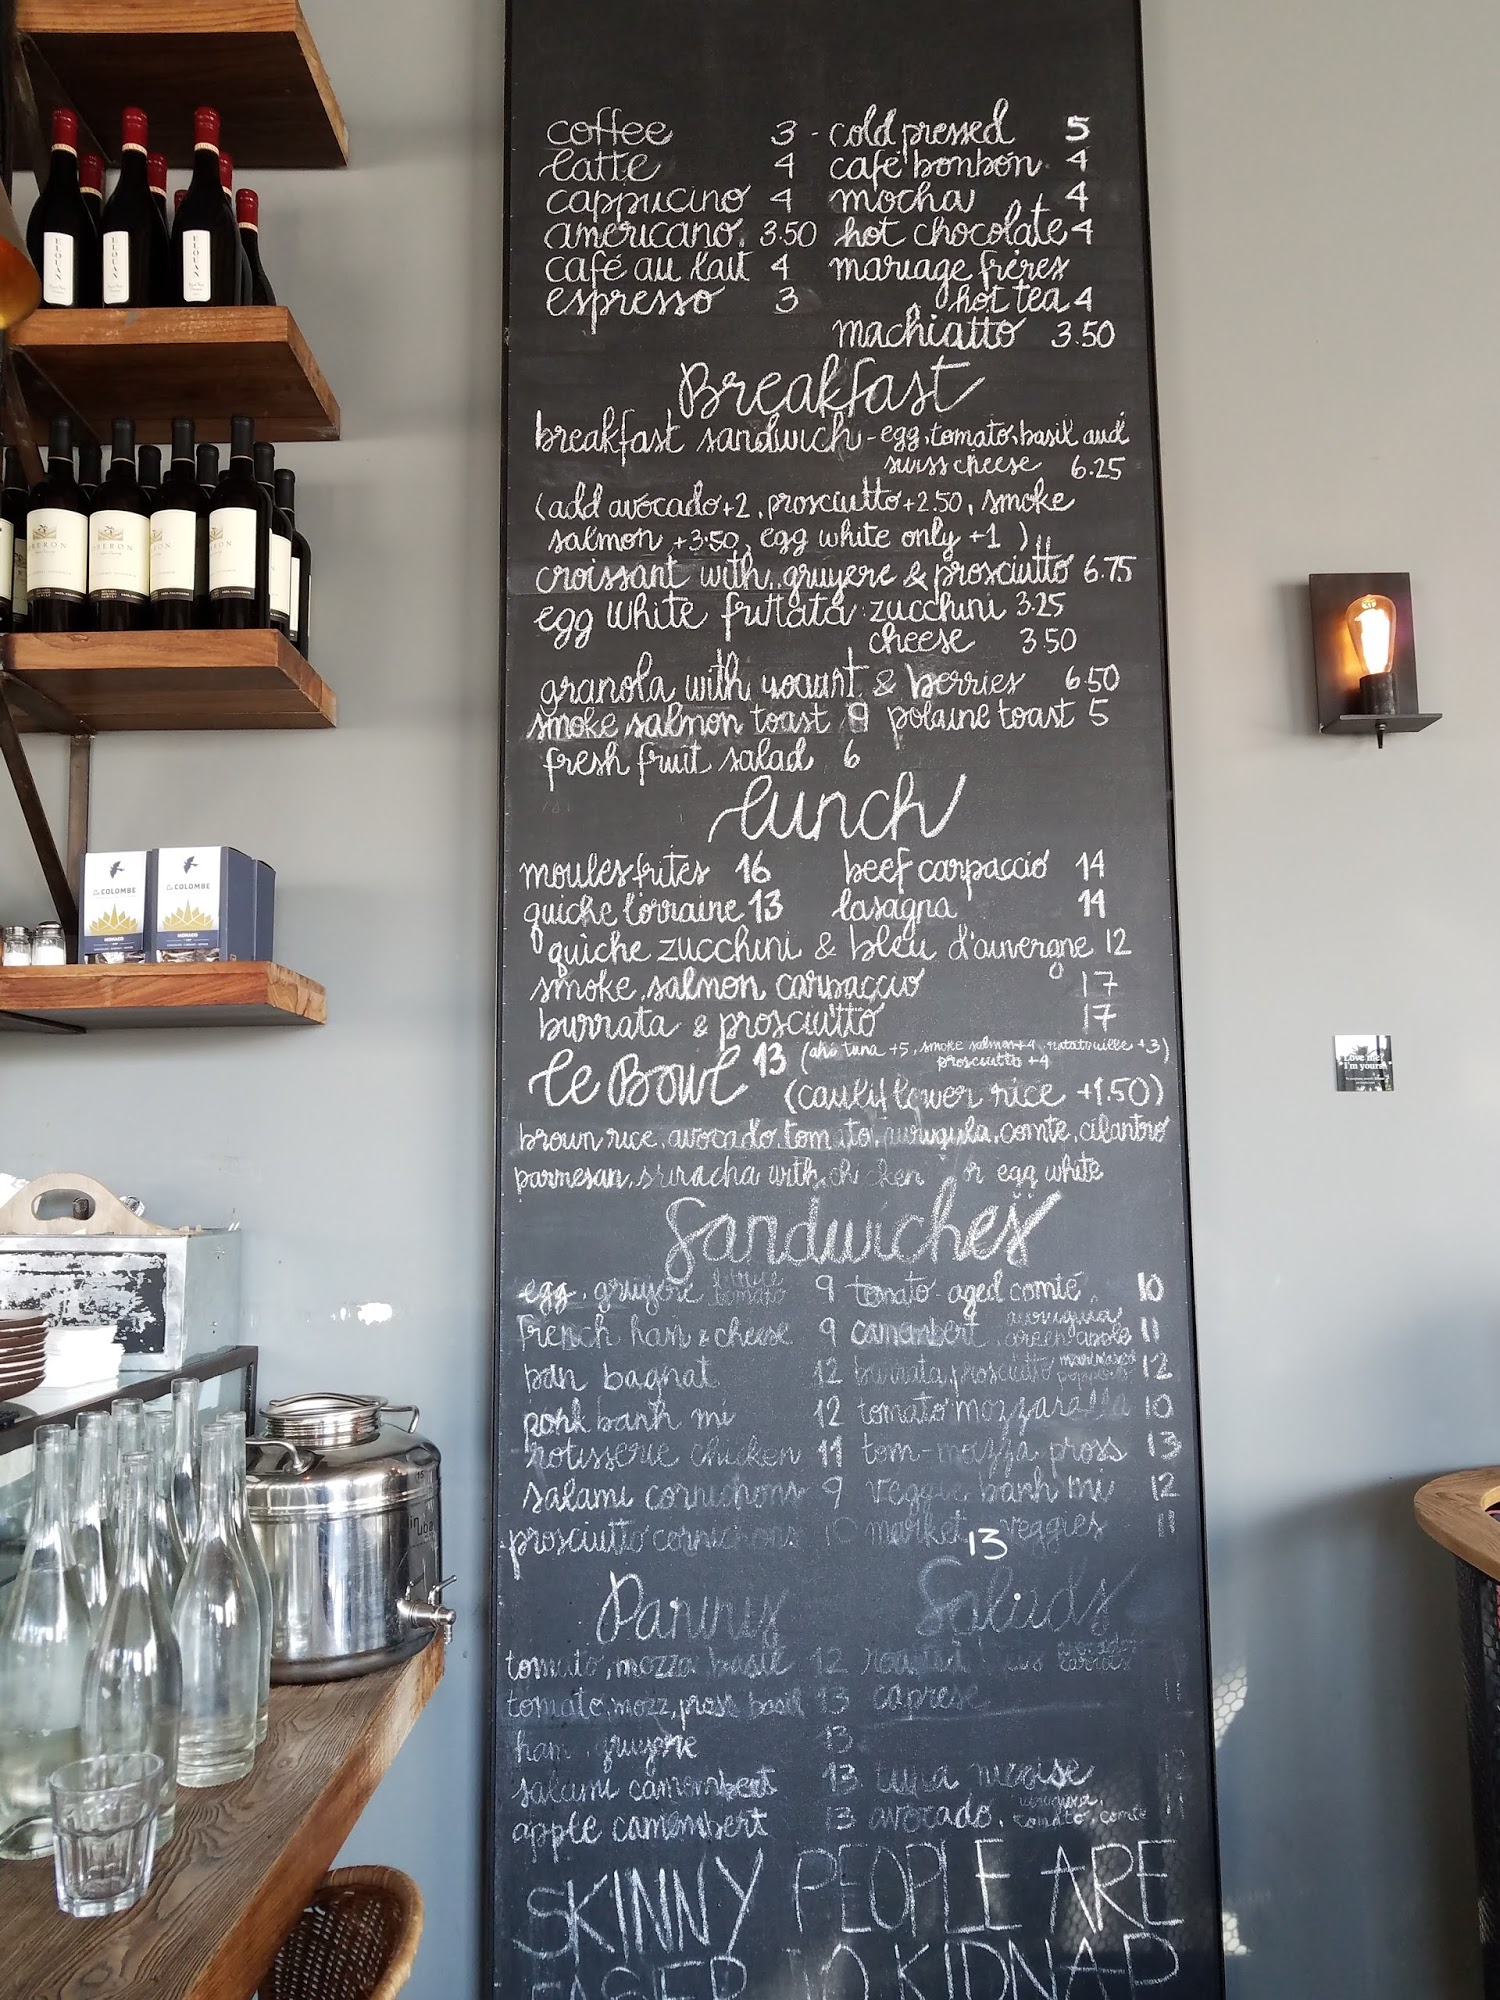 coffee 3 - cold pressed 5
latte 4 café bonbon 4
cappucino 4 mocha 4
americano 3.50 hot chocolate 4
café au lait 4 mariage frères
espresso 3 hot tea 4
machiatto 3.50
Breakfast
breakfast sandwich - egg, tomato, basil and
swiss cheese 6.25
(add avocado +2, prosciutto +2.50, smoke
salmon +3.50, egg white only +1)
croissant with gruyere & prosciutto 6.75
egg white frittata zucchini 3.25
cheese 3.50
granola with yogurt & berries 6.50
smoke salmon toast 9 polaine toast 5
fresh fruit salad 6
lunch
moules frites 16 beef carpaccio 14
quiche lorraine 13 lasagna 14
quiche zucchini & bleu d'auvergne 12
smoke salmon carpaccio 17
burrata & prosciutto 17
le Bowl 13 (ahi tuna +5, smoke salmon +4, ratatouille +3)
prosciutto +4
(cauliflower rice +1.50)
brown rice, avocado, tomato, aurugula, comte, cilantro
parmesan, sriracha with chicken or egg white
Sandwiches
egg, gruyere lettuce tomato 9 tomato - aged comté, 10
french ham & cheese 9 camembert, aurugula green apple 11
pan bagnat 12 burrata, prosciutto 12
pork banh mi 12 tomato mozzarella 10
rotisserie chicken 11 tom-mozza pross 13
salami cornichons 9 veggie banh mi 12
prosciutto cornichons 10 market veggies 11
13
Paninis Salads
tomato, mozza basil 12 roasted carrots
tomato, mozz, pross basil 13 caprese 11
ham, gruyere 13
salami camembert 13 tuna nicoise 12
apple camembert 13 avocado, tomato, comte 11
SKINNY PEOPLE ARE
EASIER TO KIDNAP
ELOUAN
ELOUAN
ELOUAN
OBERON
La COLOMBE
MONACO
La COLOMBE
MONACO
Love me?
I'm yours